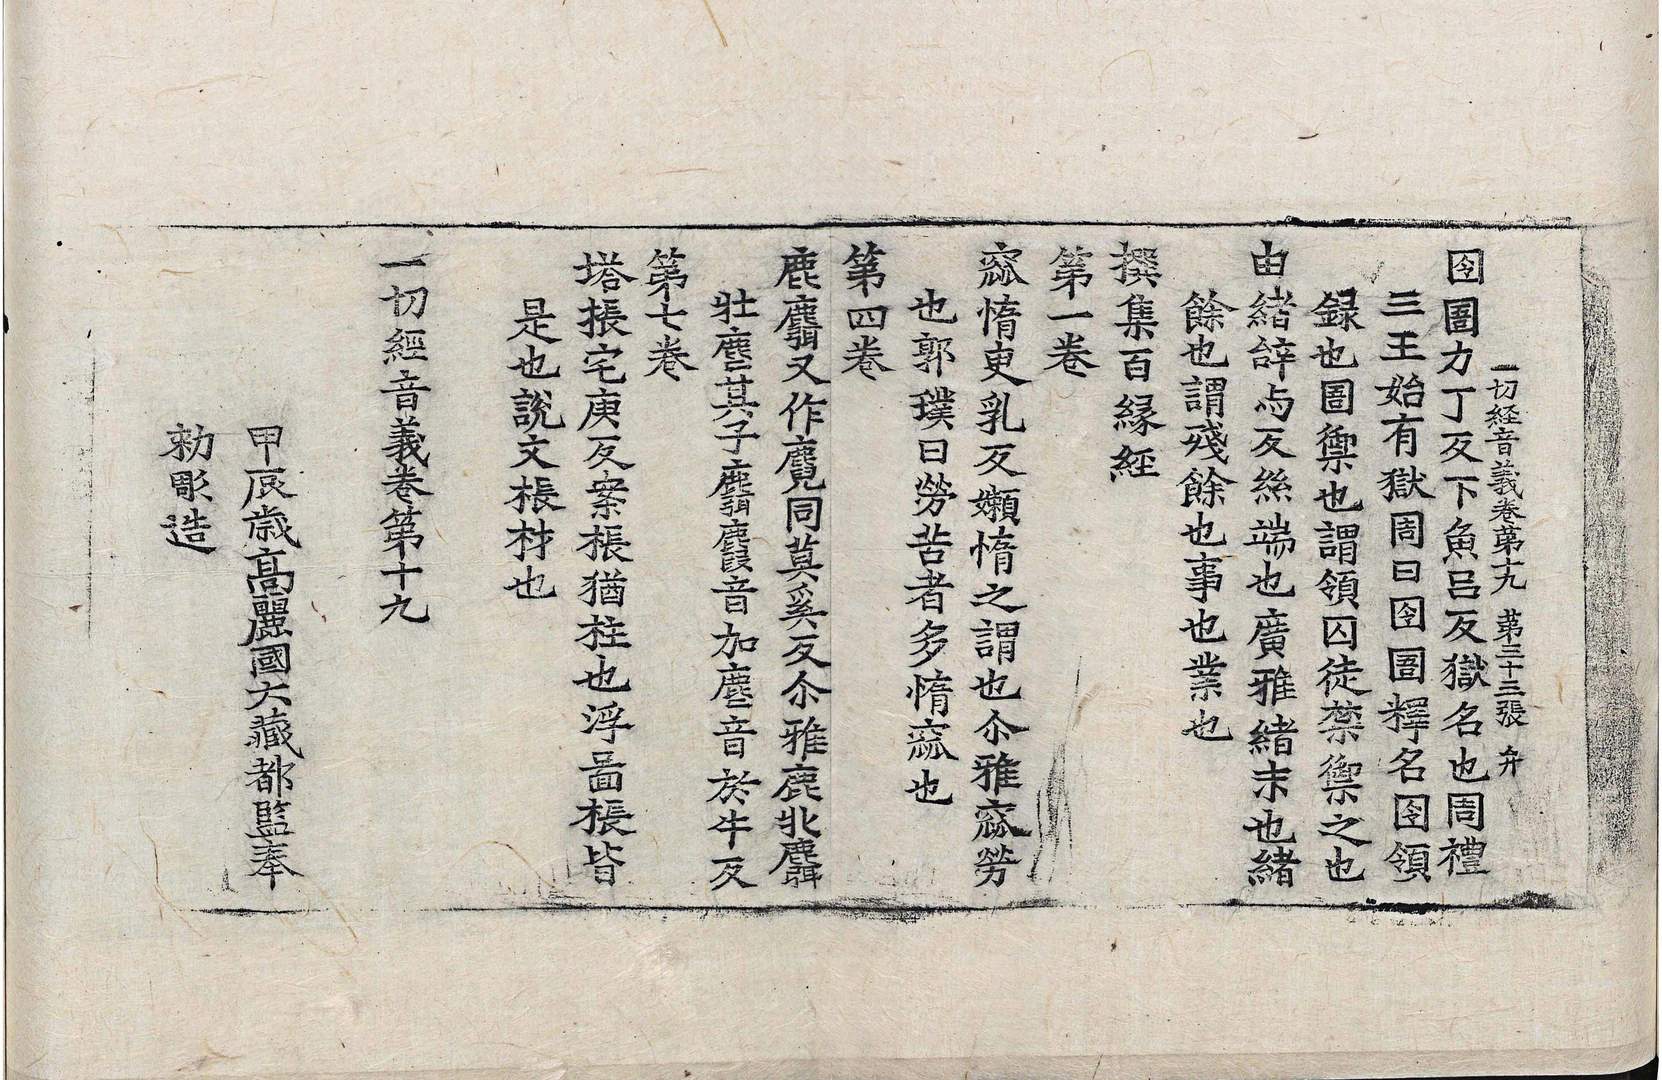 一切経音義卷第十九 第三十三張 弁
囹圄力丁反下魚呂反獄名也周禮
三王始有獄周曰囹圄釋名囹領
録也圄禦也謂領囚徒禁禦之也
由緒辝与反絲端也廣雅緒末也緒
餘也謂殘餘也事也業也
撰集百縁経
第一卷
窳惰臾乳反嬾惰之謂也尒雅窳勞
也郭璞曰勞苦者多惰窳也
第四卷
鹿麛又作麑同莫奚反尒雅鹿牝麀
牡麌其子麛麚音加麌音於牛反
第七卷
塔棖宅庚反案棖猶柱也浮啚棖皆
是也說文棖材也
一切經音義卷第十九
甲辰歲髙麗國大藏都監奉
勅彫造